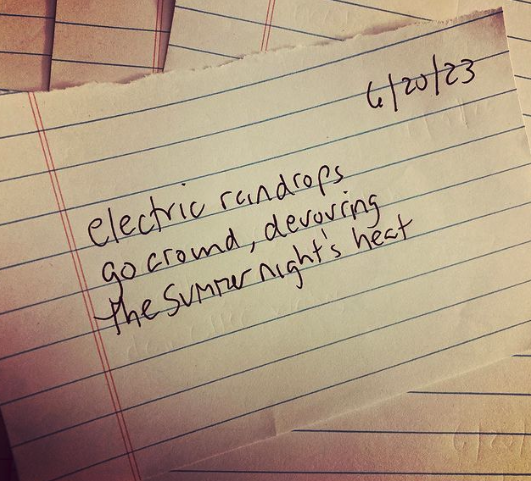 6/20/23
electric raindrops
go around, devouring
the summer night's heat